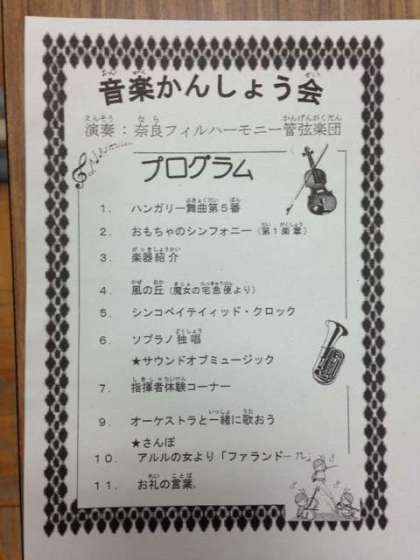 音楽かんしょう会
演奏：奈良フィルハーモニー管弦楽団
プログラム
１．ハンガリー舞曲第５番
２．おもちゃのシンフォニー（第１楽章）
３．楽器紹介
４．風の丘（魔女の宅急便より）
５．シンコペイテイィッド・クロック
６．ソプラノ独唱
★サウンドオブミュージック
７．指揮者体験コーナー
９．オーケストラと一緒に歌おう
★さんぽ
１０．アルルの女より「ファランドール」
１１．お礼の言葉．